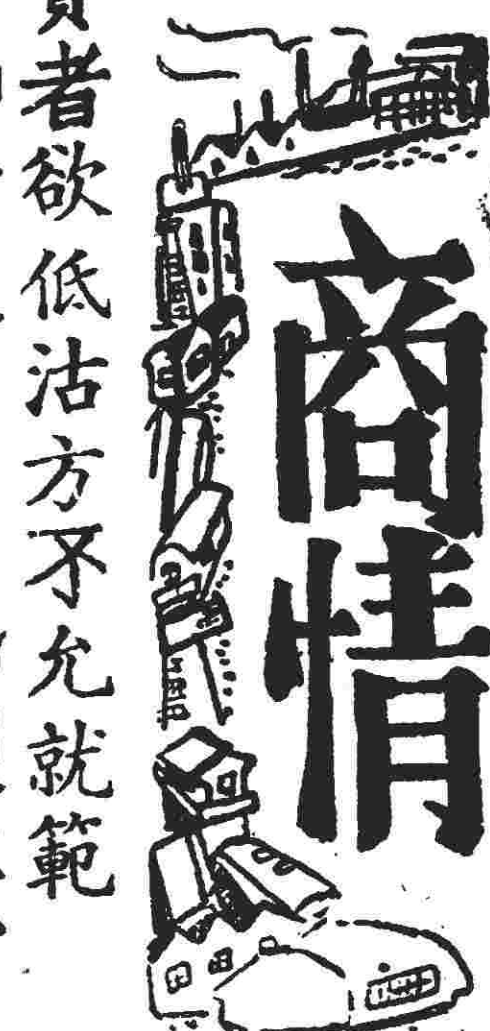 商情
者欲低沽方不允就範